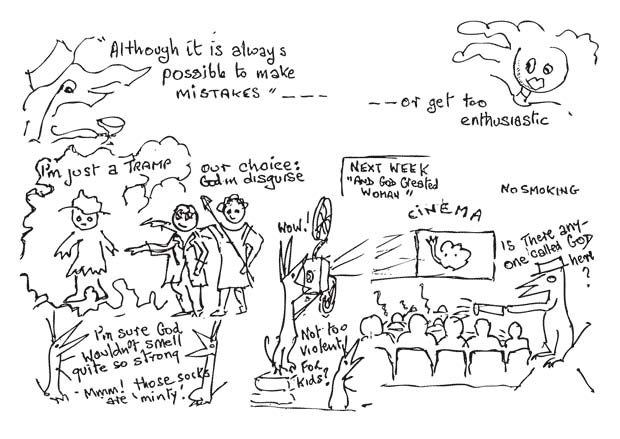 "Although it is always
possible to make
MISTAKES" ----
--or get too
enthusiastic
I'm just a TRAMP
our choice:
God in disguise
NEXT WEEK
"AND GOD Created
WOMAN"
CINEMA
NO SMOKING
WOW!
IS There any-
one called GOD
here
?
I'm sure God
Wouldn't smell
quite so strong
- Mmm! those socks
are 'minty'!
Not too
violent,
FOR
KIDS?